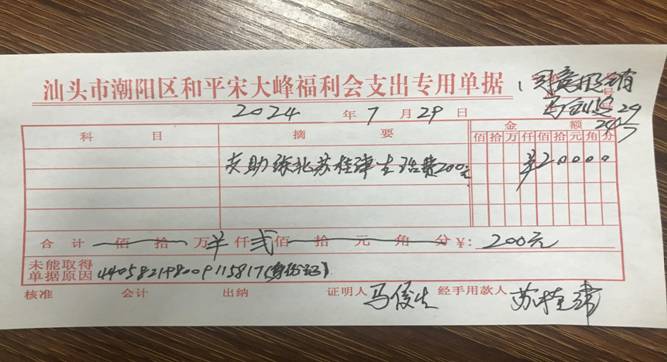 汕头市潮阳区和平宋大峰福利会支出专用单据
2024 年 7 月 29 日
科目 摘要 金额
佰拾万仟佰拾元角分
支助 苏桂津生活费200元 ¥20000
合计 佰 拾 万 仟 贰 佰 拾 元 角 分 ¥: 200元
未能取得
单据原因 440582198009115817(身份证)
核准 会计 出纳 证明人 马俊生 经手用款人 苏桂津